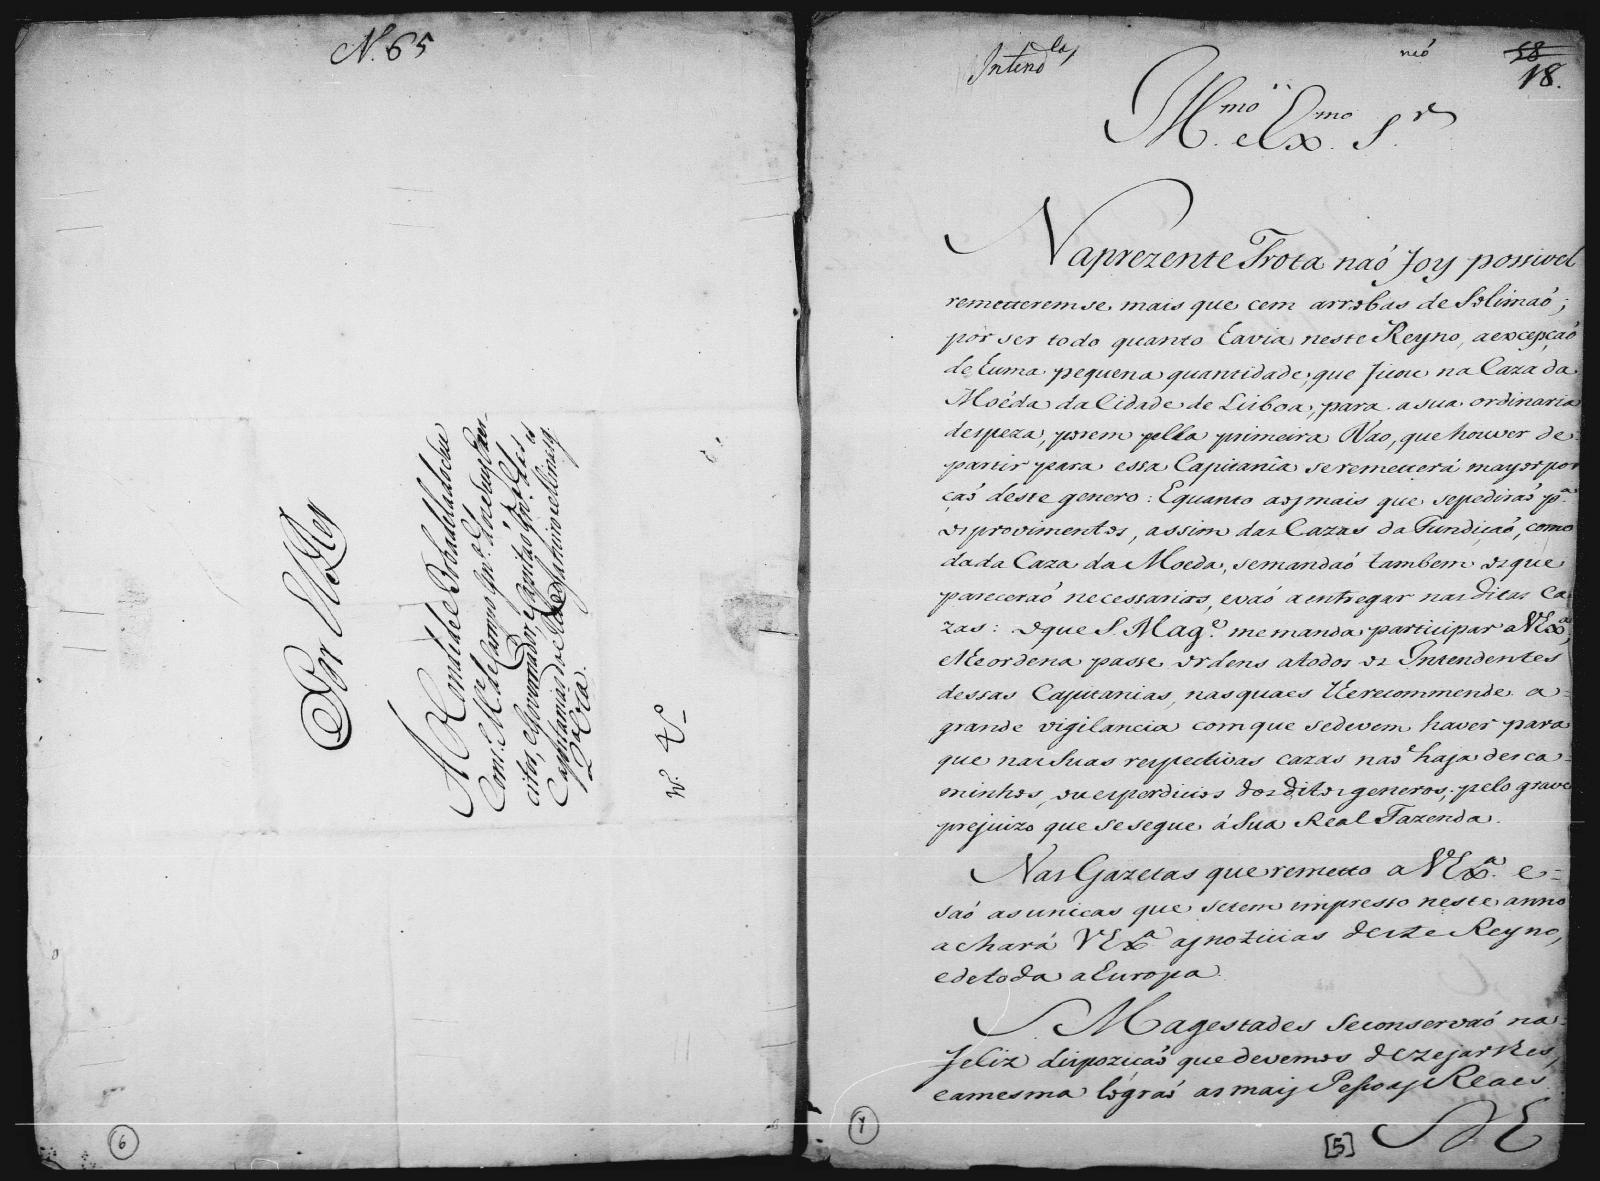 N. 65
Por El Rey
A Conde de Bobadella do seu
Cons.º M.e de Campo Gn.al dos seus Exer-
citos, e Governador, e Capitaõ Gn.al das
Capitanias do Rio de Janr.º e Minas g.
1.a Via.
6
18.
Ill.mo e Ex.mo S.r
Na prezente Frota naó foy possivel
remetteremse mais que cem arrobas de Solimaó;
por ser todo quanto havia neste Reyno, a excepçaó
de huma pequena quantidade, que ficou na Caza da
Moéda da Cidade de Lisboa, para a sua ordinaria
despeza, porem pella primeira Nao, que houver de
partir para essa Capitania se remetterá mayor por
çaó deste genero: E quanto aos mais que se pediraó p.a
os provimentos, assim das Cazas da Fundiçaó, como
da da Caza da Moeda, se mandaó tambem os que
pareceraó necessarios, e vaó a entregar nas ditas Ca
zas: o que S. Mag.e me manda participar a V Ex.a,
e Me ordena passe ordens a todos os Intendentes
dessas Capitanias, nas quaes lhe recommende a
grande vigilancia com que se devem haver para
que nas suas respectivas cazas naó haja desca=
minhos, ou esperdicios dos ditos generos, pelo grave
prejuizo que se segue á Sua Real Fazenda.
Nas Gazetas que remetto a V Ex.a e=
saó as unicas que se tem impresso neste anno
achará V Ex.a as noticias deste Reyno,
e de toda a Europa.
S. Magestades se conservaó na
feliz dispoziçaó que devemos dezejarlhes,
e a mesma lógraó as mais Pessoas Reaes.
7
[5]